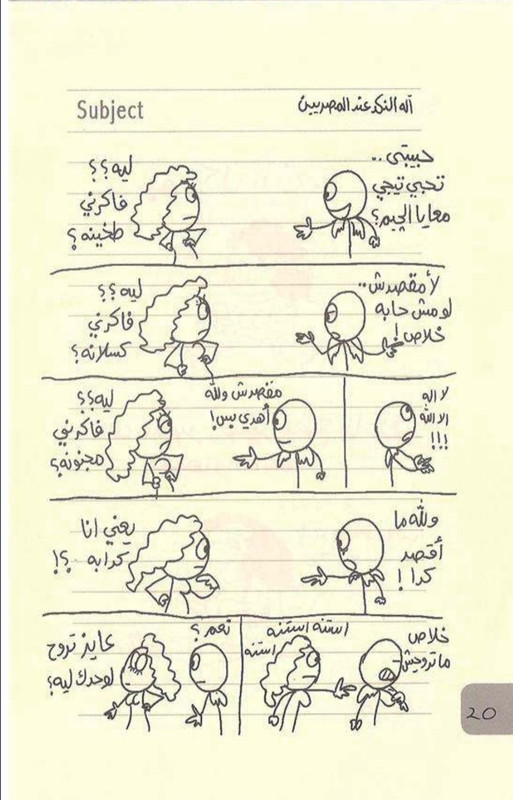 Subject
آله النكد عند المصريين
حبيبتى ..
تحبي تيجي
معايا الچيم؟
ليه؟؟
فاكرني
طخينه؟
لأ مقصدش ..
لو مش حابه
خلاص!
ليه؟؟
فاكرني
كسلانه؟
لا اله
الا الله
!!!
مقصدش ولله
أهدي بس!
ليه؟؟
فاكرني
مجنونه؟
ولله ما
أقصد
كدا!
يعني انا
كدابه ؟!
خلاص
ما تروحيش
استنه استنه
استنه
نعم؟
عايز تروح
لوحدك ليه؟
20